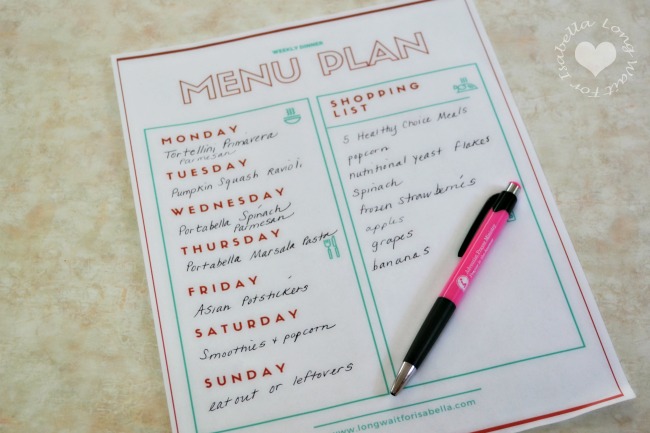 WEEKLY DINNER
MENU PLAN
MONDAY
Tortellini Primavera
Parmesan
TUESDAY
Pumpkin Squash Ravioli
WEDNESDAY
Portabella Spinach
Parmesan
THURSDAY
Portabella Marsala Pasta
FRIDAY
Asian Potstickers
SATURDAY
Smoothies + popcorn
SUNDAY
eat out or leftovers
SHOPPING
LIST
5 Healthy Choice Meals
popcorn
nutritional yeast flakes
Spinach
frozen strawberries
apples
grapes
bananas
www.longwaitforisabella.com
Long Wait For Isabella